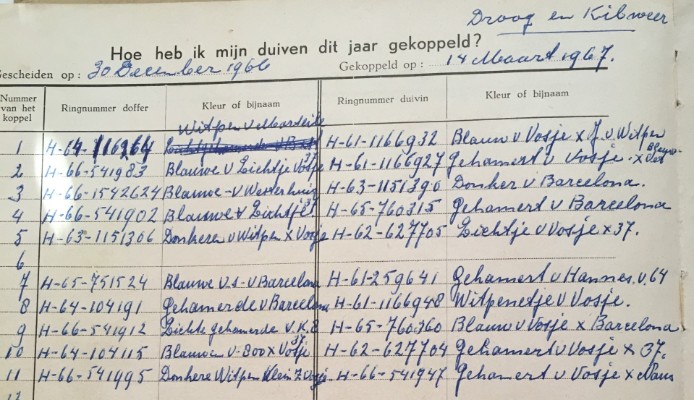 Droog en
Hoe heb ik mijn duiven dit jaar gekoppeld?
Gescheiden op : 30 December 1966 Gekoppeld op : 14 Maart 1967.
Nummer van het koppel Ringnummer doffer Kleur of bijnaam Ringnummer duivin Kleur of bijnaam
Witpen v
1 H-64-116264 H-61-1166932 Blauw v Vosje x J. v. Witpen
2 H-66-541983 Blauwe v Lichtje Vosje H-61-1166927 Gehamert v Vosje x
3 H-66-1542624 Blauwe-v Westerhuis H-63-1151390 Donker v Barcelona.
4 H-66-541902 Blauwe v H-65-760315 Gehamert v Barcelona
5 H-63-1151306 Donkere v Witpen x Vosje H-62-627705 Lichtje v Vosje x 37.
6
7 H-65-751524 Blauwe v.d. v Barcelona H-61-259641 Gehamert v Hannes. v. 64
8 H-64-104191 Gehamerde v Barcelona H-61-1166948 Witpenetje v. Vosje.
9 H-66-541912 Lichte Gehamerde v. H-65-760360 Blauw v Vosje x Barcelona
10 H-64-104115 Blauwe v-800 x Vosje 37. H-62-627704 Gehamert v Vosje x 37.
11 H-66-541995 Donkere Witpen Klein H-66-541947 Gehamert v Vosje x
12